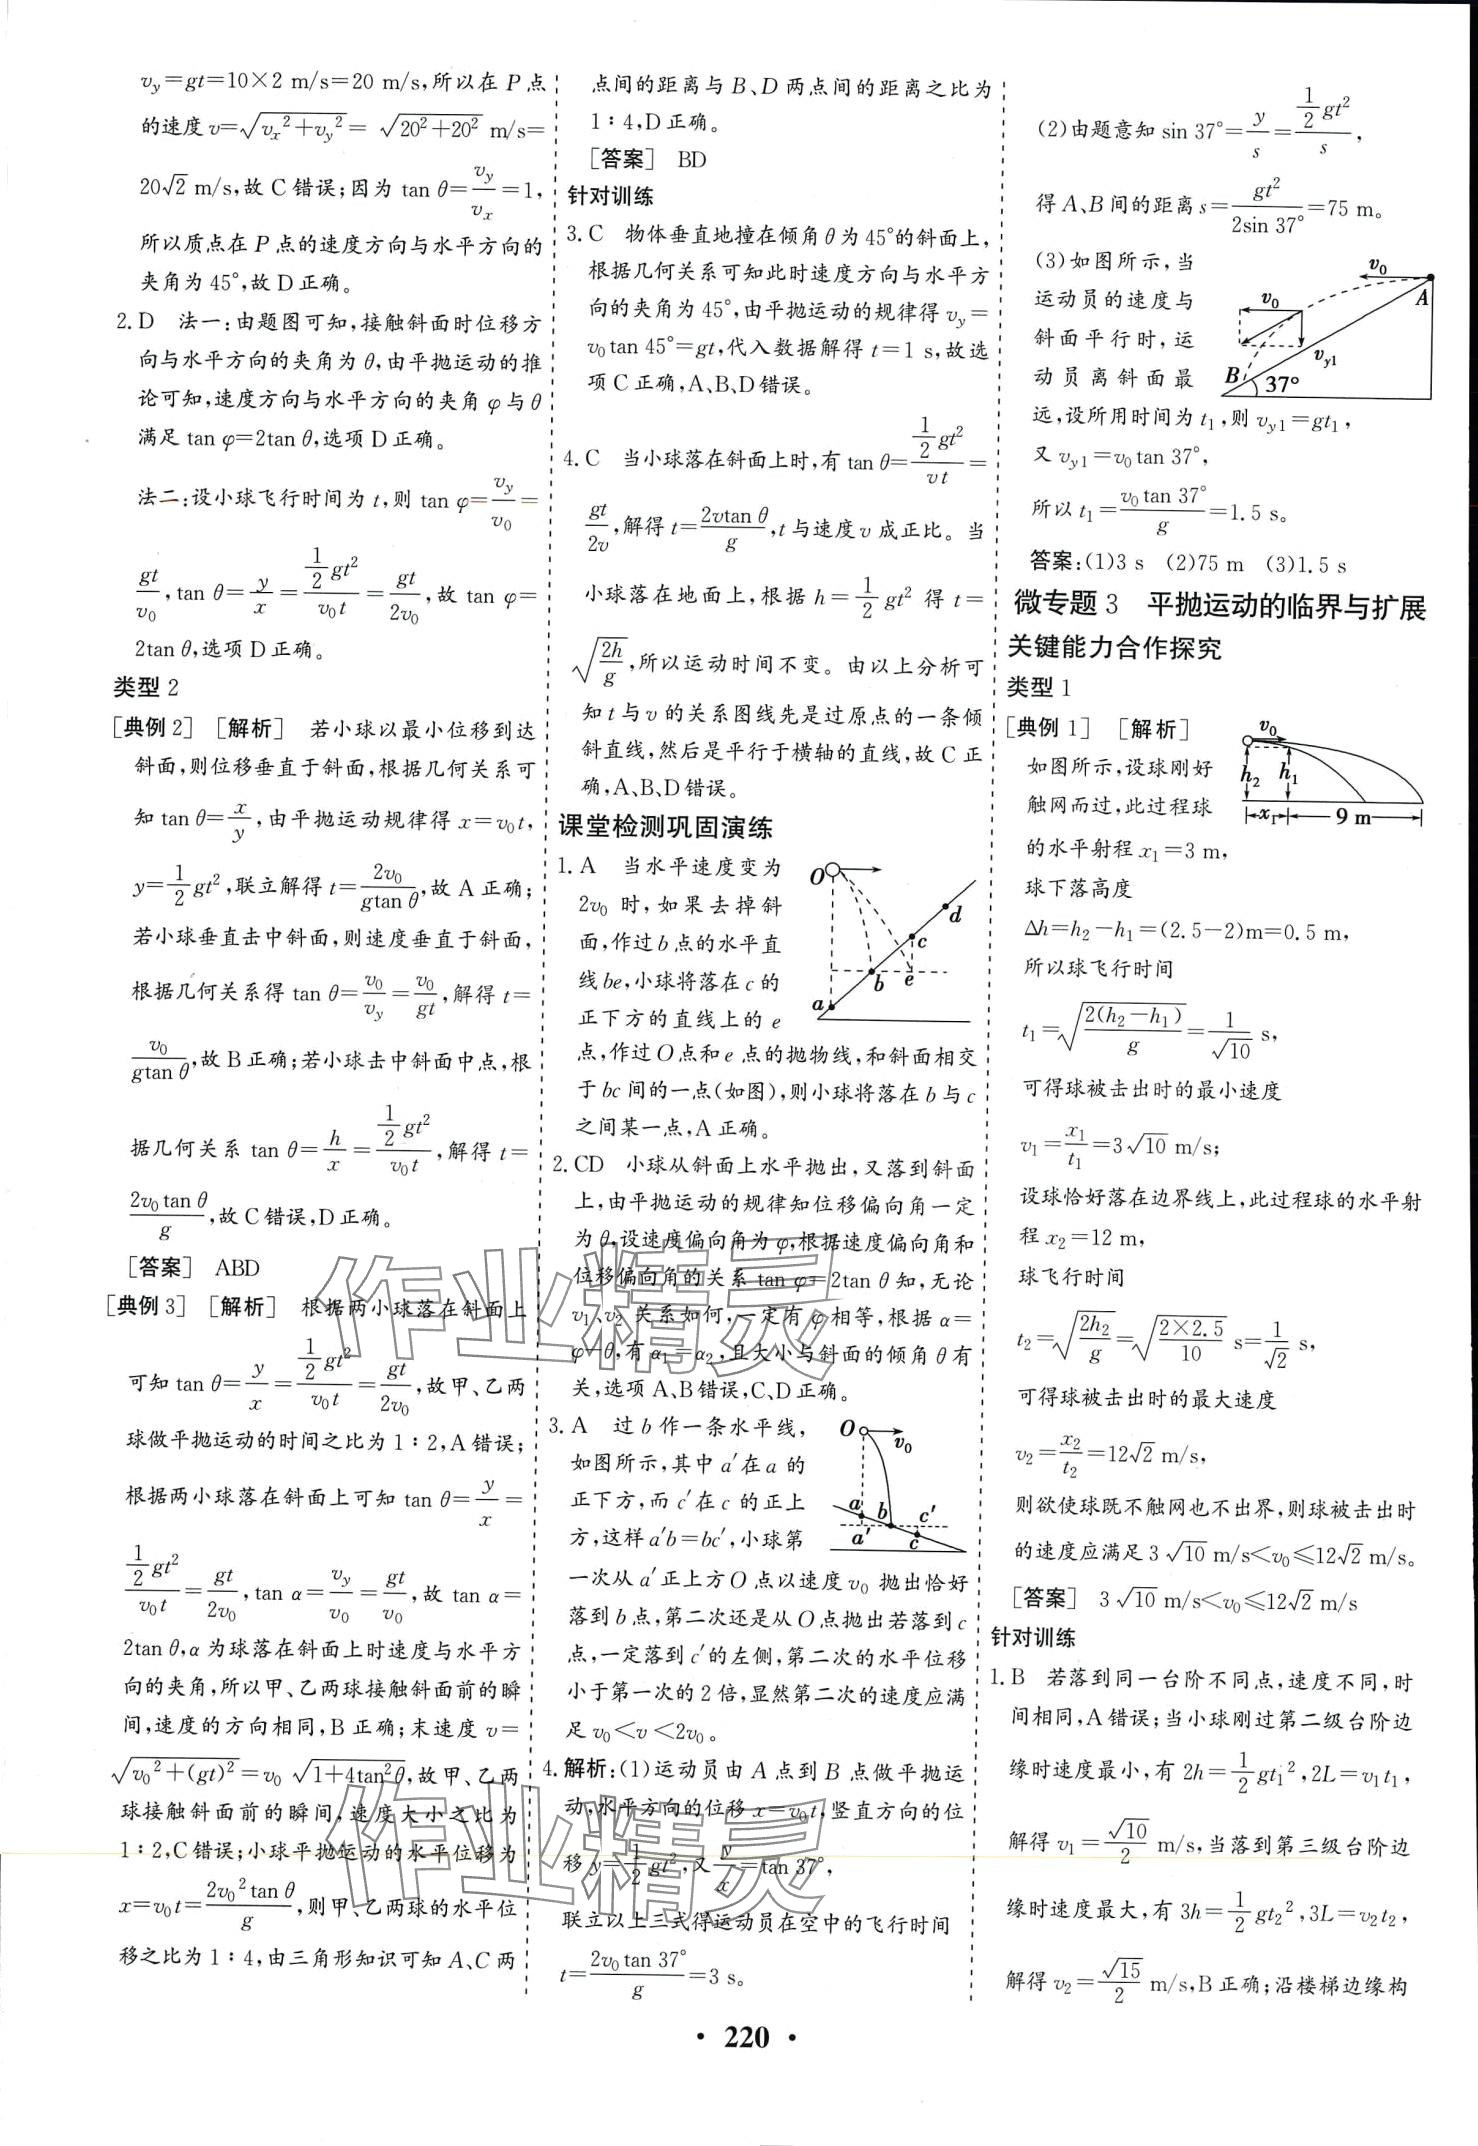 v_y=gt=10×2 m/s=20 m/s,所以在 P 点
的速度 v=√(v_x²+v_y²)=√(20²+20²) m/s=
20√2 m/s,故 C 错误;因为 tan θ=v_y/v_x=1,
所以质点在 P 点的速度方向与水平方向的
夹角为 45°,故 D 正确。
2. D 法一:由题图可知,接触斜面时位移方
向与水平方向的夹角为 θ,由平抛运动的推
论可知,速度方向与水平方向的夹角 φ 与 θ
满足 tan φ=2tan θ,选项 D 正确。
法二:设小球飞行时间为 t,则 tan φ=v_y/v₀=
gt/v₀,tan θ=y/x=(1/2 gt²)/(v₀t)=gt/(2v₀),故 tan φ=
2tan θ,选项 D 正确。
类型 2
[典例 2] [解析] 若小球以最小位移到达
斜面,则位移垂直于斜面,根据几何关系可
知 tan θ=x/y,由平抛运动规律得 x=v₀t,
y=1/2 gt²,联立解得 t=2v₀/(gtan θ),故 A 正确;
若小球垂直击中斜面,则速度垂直于斜面,
根据几何关系得 tan θ=v₀/v_y=v₀/gt,解得 t=
v₀/(gtan θ),故 B 正确;若小球击中斜面中点,根
据几何关系 tan θ=h/x=(1/2 gt²)/(v₀t),解得 t=
2v₀tan θ/g,故 C 错误,D 正确。
[答案] ABD
[典例 3] [解析] 根据两小球落在斜面上
可知 tan θ=y/x=(1/2 gt²)/(v₀t)=gt/(2v₀),故甲、乙两
球做平抛运动的时间之比为 1∶2,A 错误;
根据两小球落在斜面上可知 tan θ=y/x=
(1/2 gt²)/(v₀t)=gt/(2v₀),tan α=v_y/v₀=gt/v₀,故 tan α=
2tan θ,α 为球落在斜面上时速度与水平方
向的夹角,所以甲、乙两球接触斜面前的瞬
间,速度的方向相同,B 正确;末速度 v=
√(v₀²+(gt)²)=v₀√(1+4tan²θ),故甲、乙两
球接触斜面前的瞬间,速度大小之比为
1∶2,C 错误;小球平抛运动的水平位移为
x=v₀t=2v₀²tan θ/g,则甲、乙两球的水平位
移之比为 1∶4,由三角形知识可知 A、C 两
点间的距离与 B、D 两点间的距离之比为
1∶4,D 正确。
[答案] BD
针对训练
3. C 物体垂直地撞在倾角 θ 为 45°的斜面上,
根据几何关系可知此时速度方向与水平方
向的夹角为 45°,由平抛运动的规律得 v_y=
v₀tan 45°=gt,代入数据解得 t=1 s,故选
项 C 正确,A、B、D 错误。
4. C 当小球落在斜面上时,有 tan θ=(1/2 gt²)/(vt)=
gt/(2v),解得 t=2vtan θ/g,t 与速度 v 成正比。当
小球落在地面上,根据 h=1/2 gt² 得 t=
√(2h/g),所以运动时间不变。由以上分析可
知 t 与 v 的关系图线先是过原点的一条倾
斜直线,然后是平行于横轴的直线,故 C 正
确,A、B、D 错误。
课堂检测巩固演练
1. A 当水平速度变为
2v₀ 时,如果去掉斜
面,作过 b 点的水平直
线 be,小球将落在 c 的
正下方的直线上的 e
点,作过 O 点和 e 点的抛物线,和斜面相交
于 bc 间的一点(如图),则小球将落在 b 与 c
之间某一点,A 正确。
O
d
c
b
e
a
2. CD 小球从斜面上水平抛出,又落到斜面
上,由平抛运动的规律知位移偏向角一定
为 θ,设速度偏向角为 φ,根据速度偏向角和
位移偏向角的关系 tan φ=2tan θ 知,无论
v₁、v₂ 关系如何,一定有 φ 相等,根据 α=
φ-θ,有 α₁=α₂,且大小与斜面的倾角 θ 有
关,选项 A、B 错误,C、D 正确。
3. A 过 b 作一条水平线,
如图所示,其中 a′在 a 的
正下方,而 c′在 c 的正上
方,这样 a′b=bc′,小球第
一次从 a′正上方 O 点以速度 v₀ 抛出恰好
落到 b 点,第二次还是从 O 点抛出若落到 c
点,一定落到 c′的左侧,第二次的水平位移
小于第一次的 2 倍,显然第二次的速度应满
足 v₀<v<2v₀。
O
v₀
a
b
c′
a′
c
4. 解析:(1)运动员由 A 点到 B 点做平抛运
动,水平方向的位移 x=v₀t,竖直方向的位
移 y=1/2 gt²,又 y/x=tan 37°,
联立以上三式得运动员在空中的飞行时间
t=2v₀tan 37°/g=3 s。
(2)由题意知 sin 37°=y/s=(1/2 gt²)/s,
得 A、B 间的距离 s=gt²/(2sin 37°)=75 m。
(3)如图所示,当
运动员的速度与
斜面平行时,运
动员离斜面最
远,设所用时间为 t₁,则 v_y1=gt₁,
又 v_y1=v₀tan 37°,
所以 t₁=v₀tan 37°/g=1.5 s。
v₀
A
v₀
v_y1
B
37°
答案:(1)3 s (2)75 m (3)1.5 s
微专题 3 平抛运动的临界与扩展
关键能力合作探究
类型 1
[典例 1] [解析]
如图所示,设球刚好
触网而过,此过程球
的水平射程 x₁=3 m,
球下落高度
v₀
h₂
h₁
x₁
9 m
Δh=h₂-h₁=(2.5-2)m=0.5 m,
所以球飞行时间
t₁=√(2(h₂-h₁)/g)=1/√10 s,
可得球被击出时的最小速度
v₁=x₁/t₁=3√10 m/s;
设球恰好落在边界线上,此过程球的水平射
程 x₂=12 m,
球飞行时间
t₂=√(2h₂/g)=√(2×2.5/10) s=1/√2 s,
可得球被击出时的最大速度
v₂=x₂/t₂=12√2 m/s,
则欲使球既不触网也不出界,则球被击出时
的速度应满足 3√10 m/s<v₀≤12√2 m/s。
[答案] 3√10 m/s<v₀≤12√2 m/s
针对训练
1. B 若落到同一台阶不同点,速度不同,时
间相同,A 错误;当小球刚过第二级台阶边
缘时速度最小,有 2h=1/2 gt₁²,2L=v₁t₁,
解得 v₁=√10/2 m/s,当落到第三级台阶边
缘时速度最大,有 3h=1/2 gt₂²,3L=v₂t₂,
解得 v₂=√15/2 m/s,B 正确;沿楼梯边缘构
• 220 •
作业精灵
作业精灵